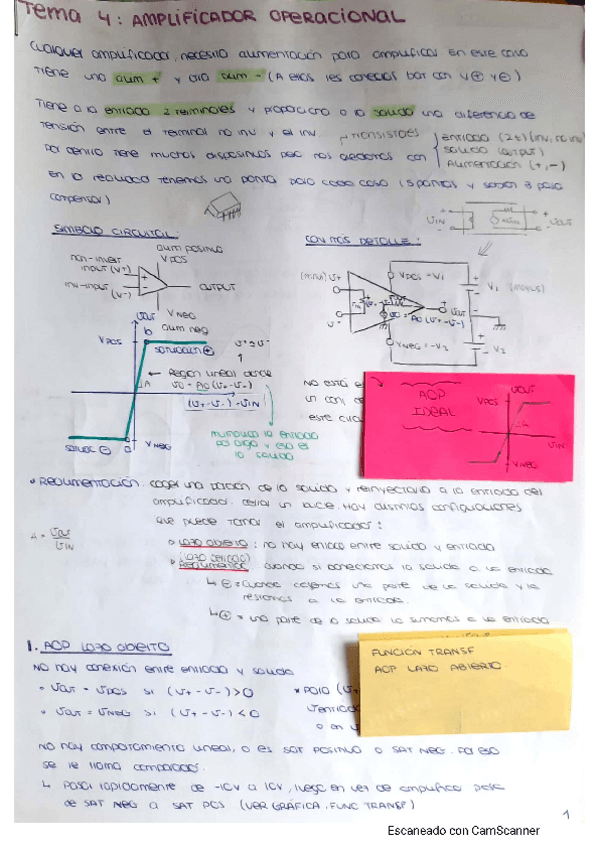 Tema 4: AMPLIFICADOR OPERACIONAL
Cualquier amplificador, necesita alimentación para amplificar en este caso
tiene una alim + y otra alim - (A ellos les conectas bat con V⊕ y ⊖)
Tiene a la entrada 2 terminales y proporciona a la salida una diferencia de
tensión entre el terminal no inv y el inv.
transistores
entrada (2t) (inv, no inv)
Por dentro tiene muchos dispositivos pero nos quedamos con
salida (output)
Alimentación (+,-)
en la realidad tenemos una patita para cada cosa (5 patitas y sobran 3 para
compensar)
VIN
VOUT
SIMBOLO CIRCUITAL:
CON MÁS DETALLE:
alim positivo
VPOS
non-invert
input (V+)
inv-input
(V-)
OUTPUT
VNEG
alim neg
VPOS - V1
V1
V-
VO = AO (V+ - V-)
VOUT
VNEG = -V2
V2
VOUT
VPOS
saturación ⊕
← Región lineal donde
VO = AO (V+ - V-)
(V+ - V-) = VIN
VNEG
NO está
un con
este
AOP
IDEAL
VOUT
VPOS
VIN
VNEG
• REALIMENTACIÓN: coger una porción de la salida y reinyectarla a la entrada del
amplificador. crear un bucle. Hay distintas configuraciones
que puede tener el amplificador:
A = VOUT / VIN
• LAZO ABIERTO: no hay enlace entre salida y entrada
(LAZO CERRADO)
cuando si conectamos la salida a la entrada
↳ ⊖ = cuando cogemos una parte de la salida y la
restamos a la entrada.
↳ ⊕ = una parte de la salida la sumamos a la entrada
1. AOP LAZO ABIERTO
FUNCIÓN TRANSF
AOP LAZO ABIERTO
NO hay conexión entre entrada y salida
• VOUT = VPOS si (V+ - V-) > 0
* para (V+
• VOUT = VNEG si (V+ - V-) < 0
NO hay comportamiento lineal, o es SAT POSITIVO o SAT NEG. Por eso
se le llama comparador.
↳ Pasa rápidamente de -10V a 10V, luego en vez de amplificar pasa
de SAT NEG a SAT POS (VER GRÁFICA, FUNC TRANSF)
1
Escaneado con CamScanner